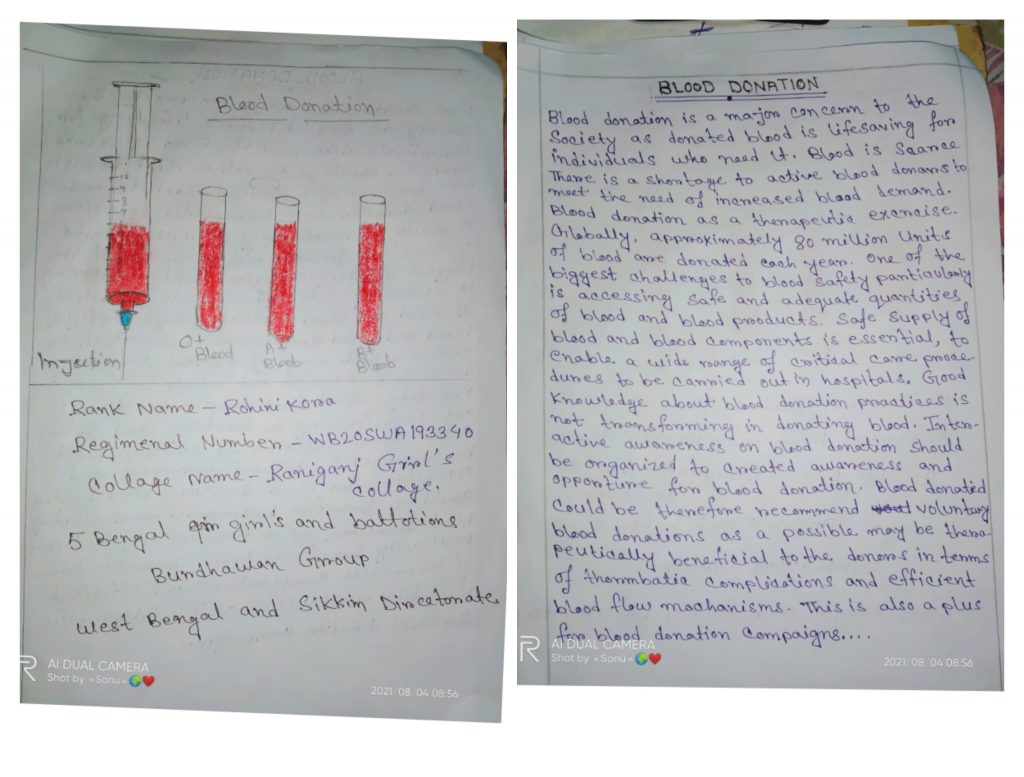 Blood Donation
10
9
8
7
O+
Blood
A+
Bloob
B+
Bloob
In-jection
Rank Name - Rohini Kora
Regimenal Number - WB20SWA193340
Collage Name - Raniganj Girl's
collage.
5 Bengal girl's and battotions
Burdhawan Group
West Bengal and Sikkim Dircetorate
AI DUAL CAMERA
Shot by Sonu 🌍❤️
2021. 08. 04 08:56
BLOOD DONATION
Blood donation is a ma-jor concern to the
Society as donated blood is lifesaving for
individuals who need it. Blood is Scarce
There is a shortage to active blood donars to
meet the need of increased blood demand.
Blood donation as a therapeutic exercise.
Globally, approximately 80 million Units
of blood are donated each year. One of the
biggest challenges to blood safety particularly
is accessing safe and adequate quantities
of blood and blood products. Safe supply of
blood and blood components is essential, to
enable a wide range of critical care proce-
dures to be carried out in hospitals. Good
Knowledge about blood donation practices is
not transforming in donating blood. Inter-
active awareness on blood donation should
be organized to created awareness and
opportune for blood donation. Blood donated
could be therefore recommend voluntary
blood donations as a possible may be thera-
peutically beneficial to the donors in terms
of thormbatic complications and efficient
blood flow machanisms. This is also a plus
for blood donation Compaigns....
AI DUAL CAMERA
Shot by Sonu 🌍❤️
2021. 08. 04 08:56